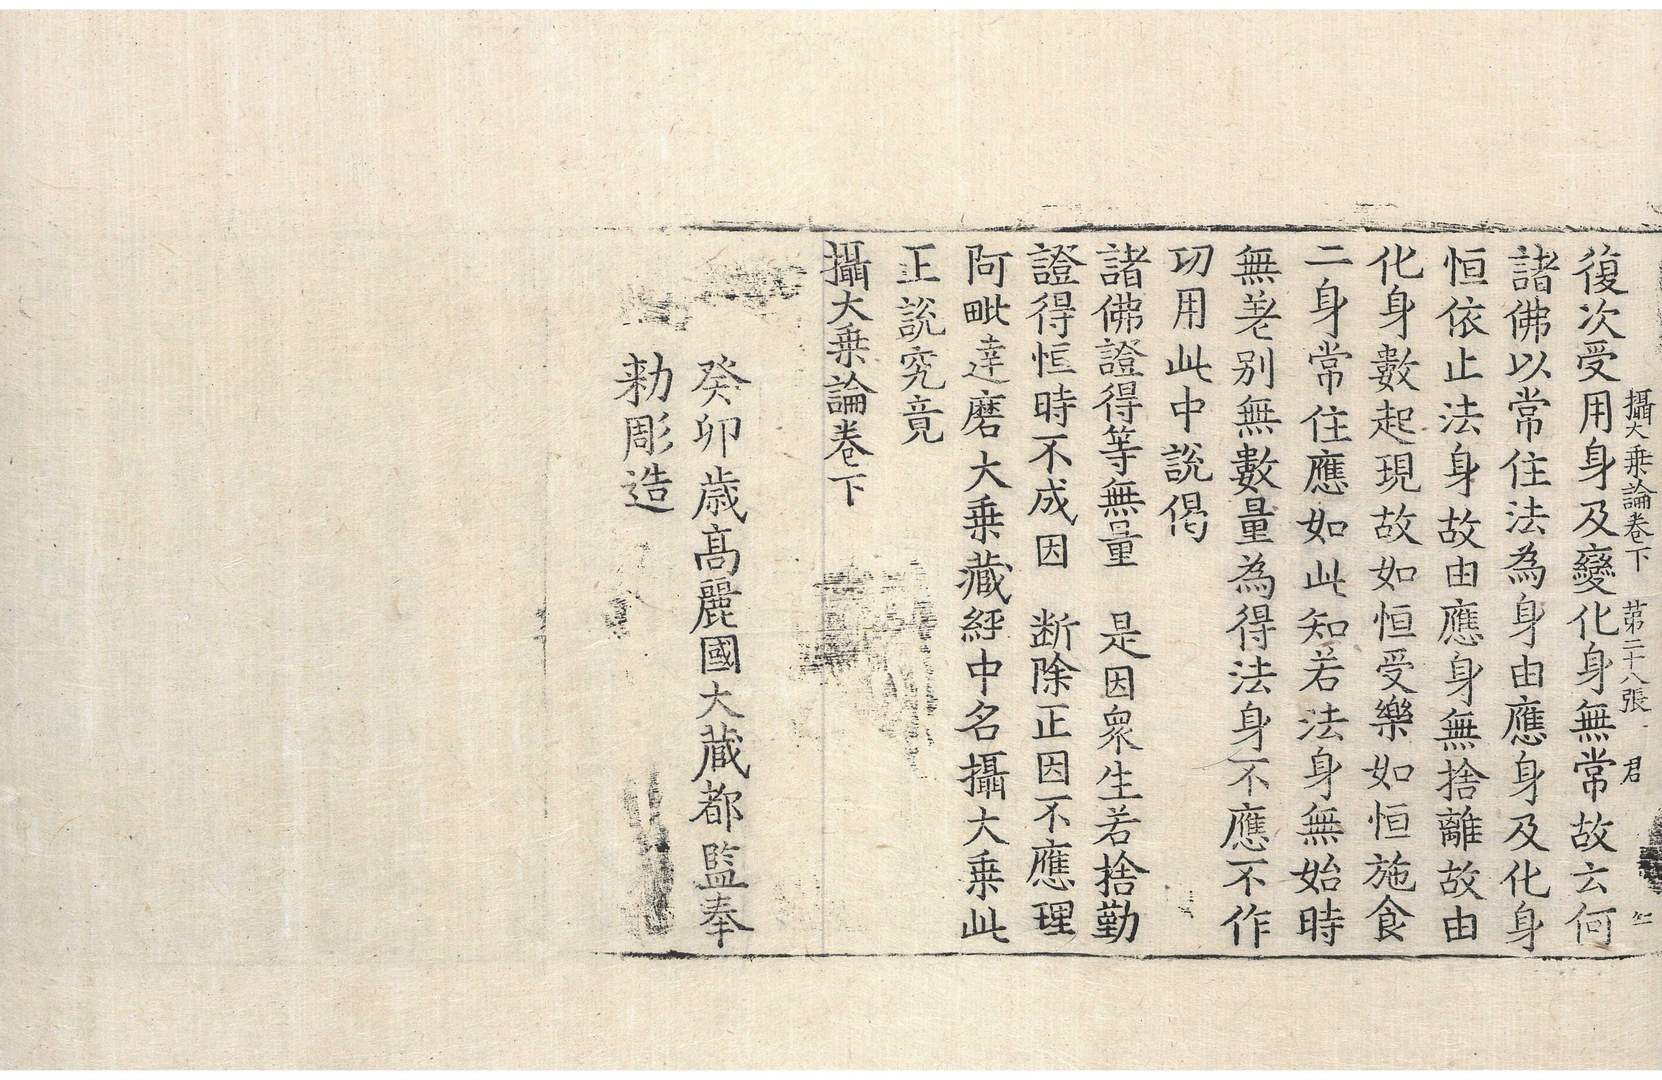 攝大乘論卷下　苐二十八張　君
復次受用身及變化身無常故云何
諸佛以常住法為身由應身及化身
恒依止法身故由應身無捨離故由
化身數起現故如恒受樂如恒施食
二身常住應如此知若法身無始時
無差别無數量為得法身不應不作
功用此中說偈
諸佛證得等無量　是因衆生若捨勤
證得恒時不成因　断除正因不應理
阿毗達磨大乘藏經中名攝大乘此
正說究竟
攝大乘論卷下
癸卯歲高麗國大藏都監奉
勑彫造